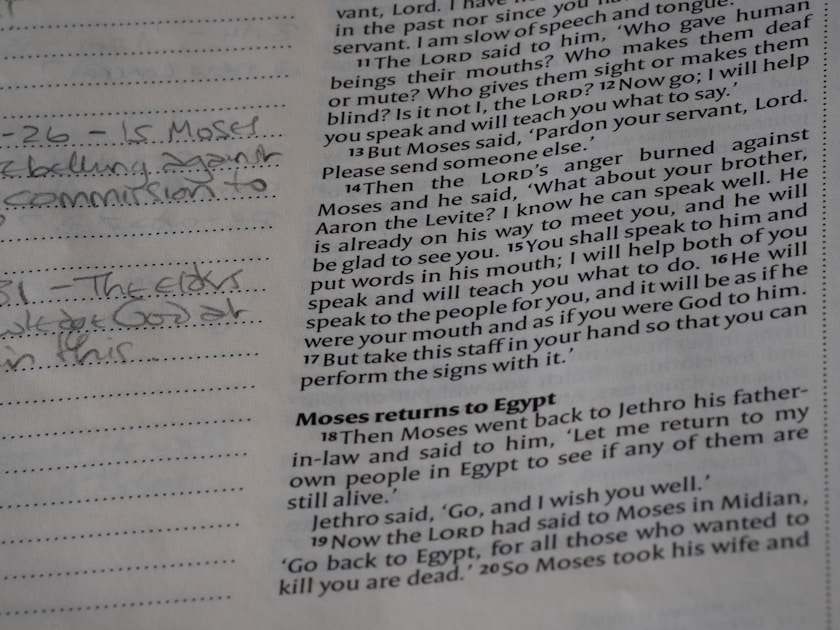 -26 - Is Moses
ebelling against
commission to
31 - The elders
God at
in this.
vant, Lord. I have
in the past nor since you
servant. I am slow of speech and tongue.
11 The LORD said to him, ‘Who gave human
beings their mouths? Who makes them deaf
or mute? Who gives them sight or makes them
blind? Is it not I, the LORD? 12 Now go; I will help
you speak and will teach you what to say.’
13 But Moses said, ‘Pardon your servant, Lord.
Please send someone else.’
14 Then the LORD’s anger burned against
Moses and he said, ‘What about your brother,
Aaron the Levite? I know he can speak well. He
is already on his way to meet you, and he will
be glad to see you. 15 You shall speak to him and
put words in his mouth; I will help both of you
speak and will teach you what to do. 16 He will
speak to the people for you, and it will be as if he
were your mouth and as if you were God to him.
17 But take this staff in your hand so that you can
perform the signs with it.’
Moses returns to Egypt
18 Then Moses went back to Jethro his father-
in-law and said to him, ‘Let me return to my
own people in Egypt to see if any of them are
still alive.’
Jethro said, ‘Go, and I wish you well.’
19 Now the LORD had said to Moses in Midian,
‘Go back to Egypt, for all those who wanted to
kill you are dead.’ 20 So Moses took his wife and